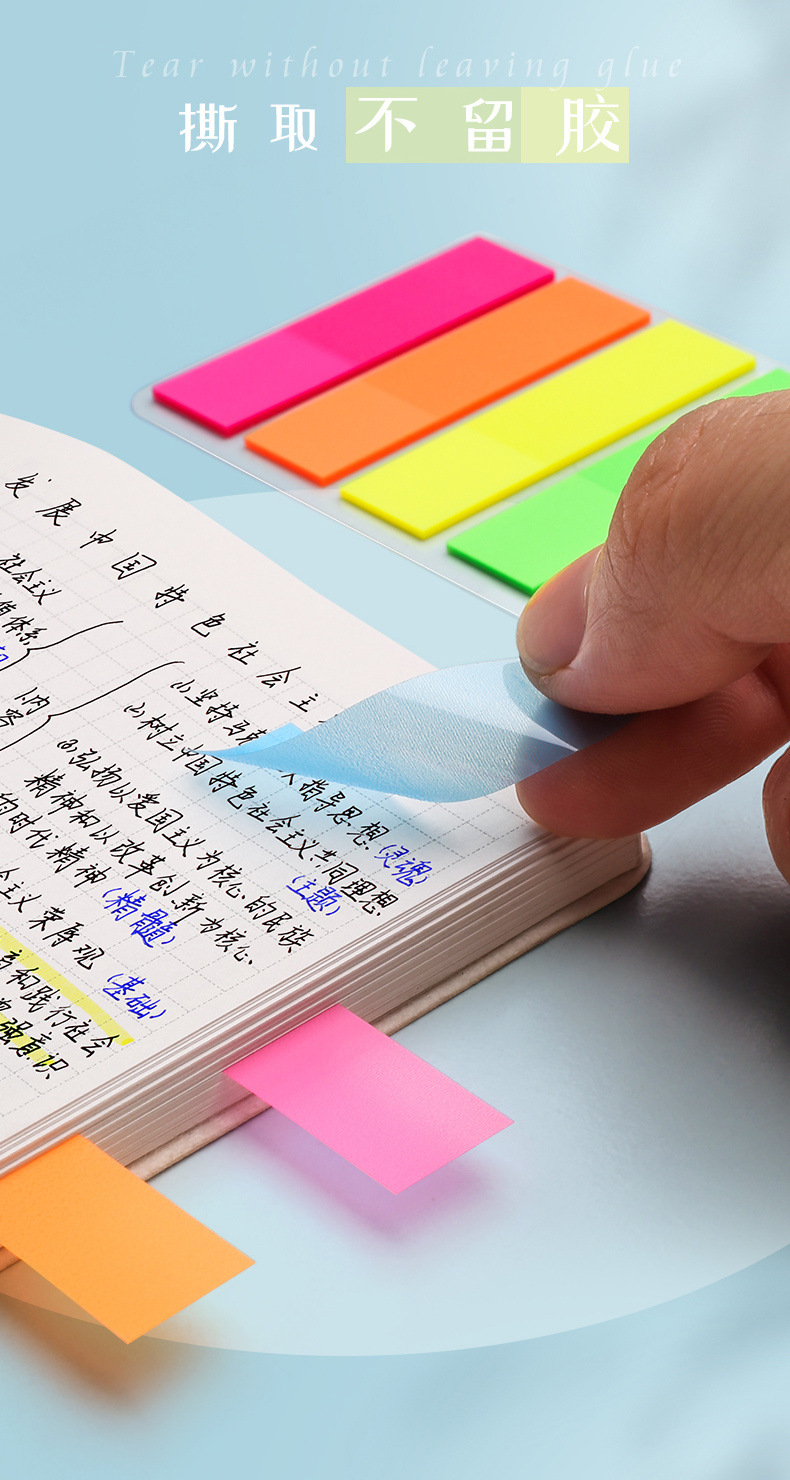 Tear without leaving glue
撕取不留胶
发展中国特色社会主
社会主义
值体系
内
容
(1)坚持马 指导思想(灵魂)
(2)树立中国特色社会主义共同理想
(主题)
(3)弘扬以爱国主义为核心的民族
精神和以改革创新为核心
的时代精神(精髓)
会主义荣辱观(基础)
和践行社会
强意识